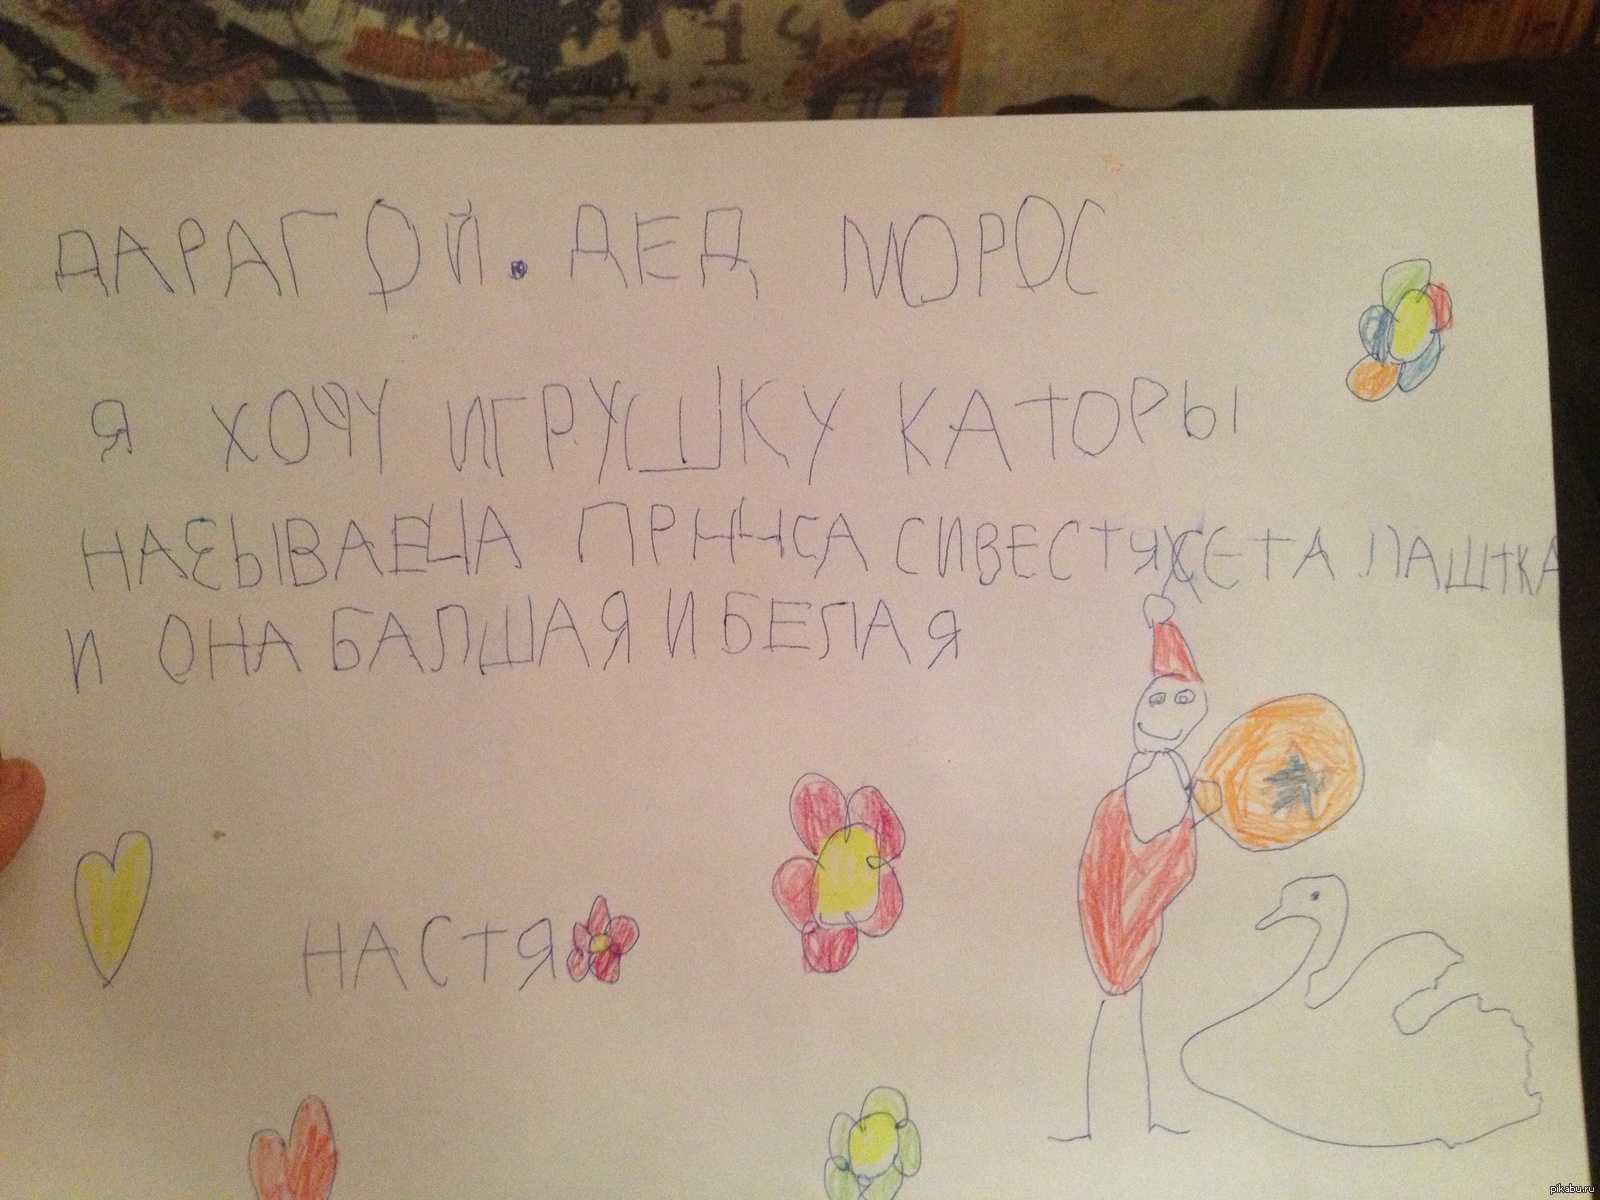 ДАРАГОЙ. ДЕД МОРОС
Я ХОЧУ ИГРУШКУ КАТОРЫ
НАЗЫВАЕЦА ПРИНЦСА СИВЕСТЯ ЕТА ЛАШТКА
И ОНА БАЛШАЯ И БЕЛАЯ
НАСТЯ
pikabu.ru